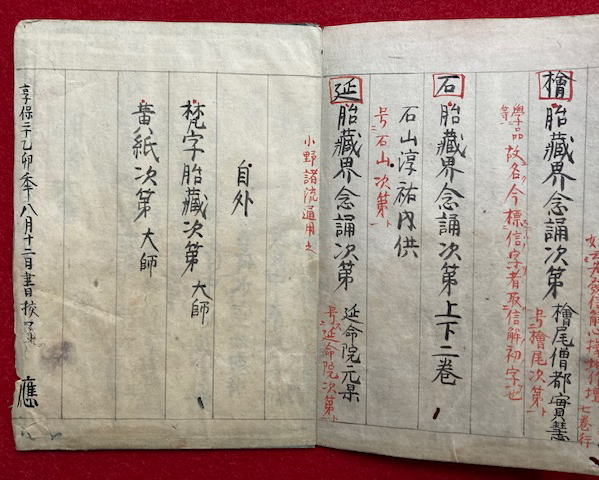 檜 胎藏界念誦次第 檜尾僧都實慧
号檜尾次第
故各今標信字者取信解初字也
石 胎藏界念誦次第上下二巻
石山淳祐内供
号石山次第
延 胎藏界念誦次第 延命院元杲
号延命院次第
小野諸流通用之
自外
梵字胎藏次第 大師
黄紙次第 大師
享保二十乙卯季八月十二日書挍了
應